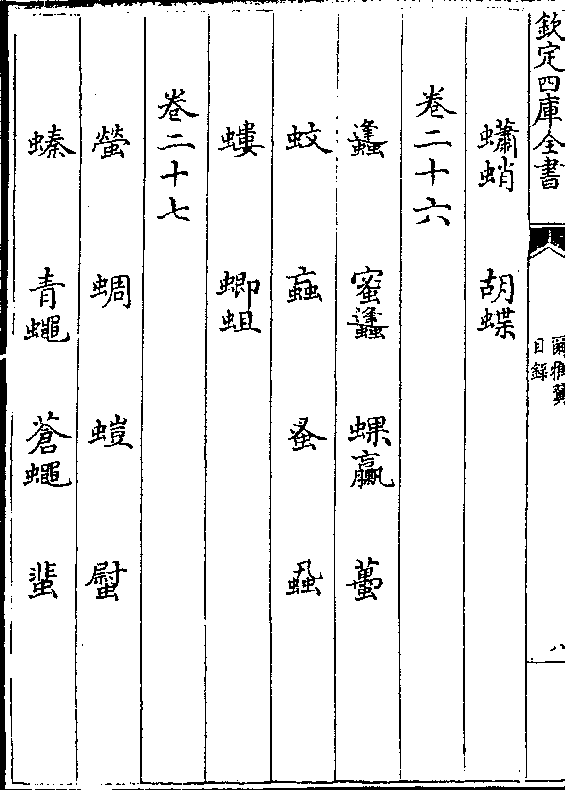 欽定四庫全書
爾雅翼
目錄
八
蠨蛸 胡蝶
卷二十六
蠭 蜜蠭 蜾蠃 蠆
蚊 蝱 蚤 蝨
螻 蝍蛆
卷二十七
螢 蜩 螘 螱
螓 青蠅 蒼蠅 蜚